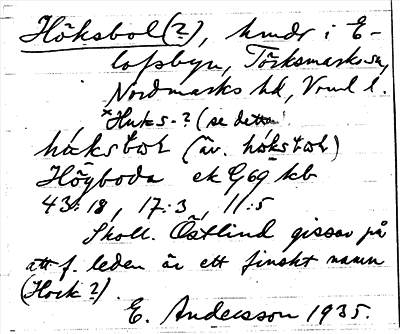 Höksbol(?), hmdr i E-
lofsbyn, Törksmarks sn,
Nordmarks hd, Vrml l.
×Huks-? (se detta)
hǻksbʋɫ (äv. hóksbʋɫ)
Högboda ek G69 kb
43:18, 17:3, 11:5
Skoll. Östlind gissar på
att f. leden är ett finskt namn
(Hock?).
E. Andersson 1935.